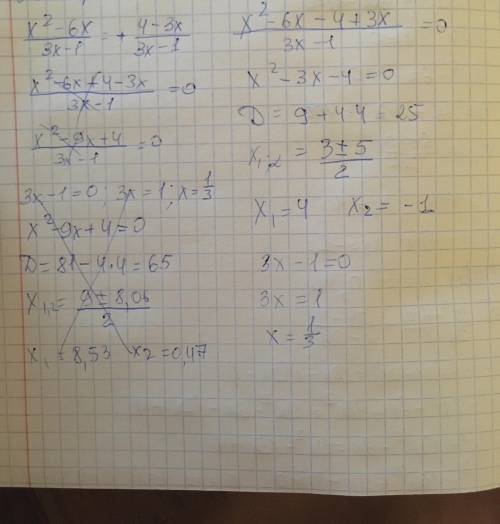 (x²-6x)/(3x-1) = + (4-3x)/(3x-1)
(x²-6x+4-3x)/(3x-1) = 0
(x²-9x+4)/(3x-1) = 0
3x-1=0; 3x=1; x=1/3
x²-9x+4=0
D=81-4·4=65
x₁,₂= (9±8,06)/2
x₁=8,53 x2=0,47
(x²-6x-4+3x)/(3x-1) = 0
x²-3x-4=0
D=9+4·4=25
x₁,₂ = (3±5)/2
x₁=4 x2=-1
3x-1=0
3x=1
x=1/3